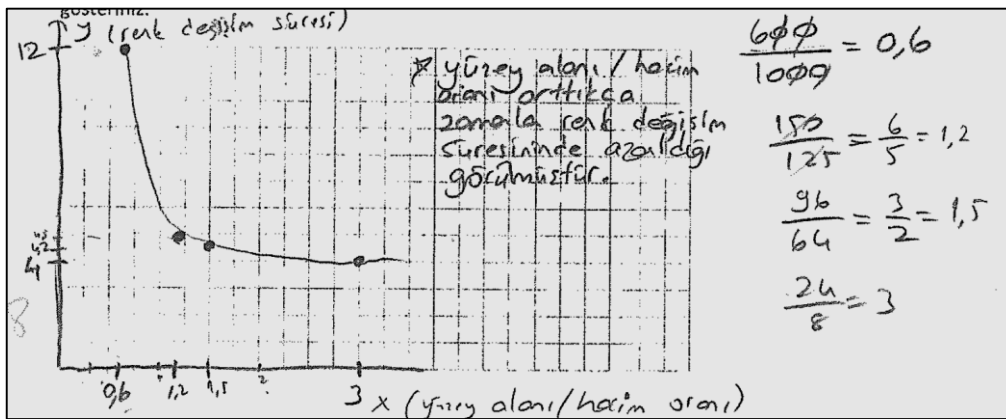 gösteriniz.
y (renk değişim süresi)
12
5,5
5,2
4
8
0,6
1,2
1,5
2
3
x (yüzey alanı/hacim oranı)
* yüzey alanı/hacim
oranı arttıkça
zamanla renk değişim
süresininde azaldığı
görülmüştür.
600/1000 = 0,6
150/125 = 6/5 = 1,2
96/64 = 3/2 = 1,5
24/8 = 3